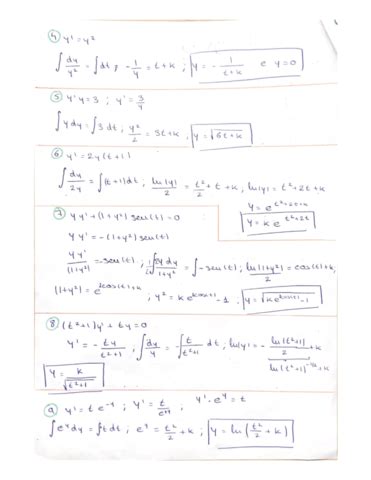 4) y' = y²
∫ dy/y² = ∫ dt, - 1/y = t + k ; y = - 1/(t+k) e y = 0
5) y' y = 3 ; y' = 3/y
∫ y dy = ∫ 3 dt ; y²/2 = 3t + k ; y = √(6t + k)
6) y' = 2y (t+1)
∫ dy/2y = ∫ (t+1) dt ; ln|y|/2 = t²/2 + t + k ; ln|y| = t² + 2t + k
y = k e^(t²+2t)
7) y y' + (1+y²) sen(t) = 0
y y' = -(1+y²) sen(t)
y y'/(1+y²) = -sen(t) ; 1/2 ∫ 2y dy/(1+y²) = ∫ -sen(t) ; ln|1+y²|/2 = cos(t) + k
8) (t²+1) y' + ty = 0
y' = - ty/(t²+1) ; ∫ dy/y = - ∫ t/(t²+1) dt ; ln|y| = - ln|t²+1|/2 + k
y = k/√(t²+1)
9) y' = t e^-y ; y' = t/e^y ; y' · e^y = t
∫ e^y dy = ∫ t dt ; e^y = t²/2 + k ; y = ln(t²/2 + k)